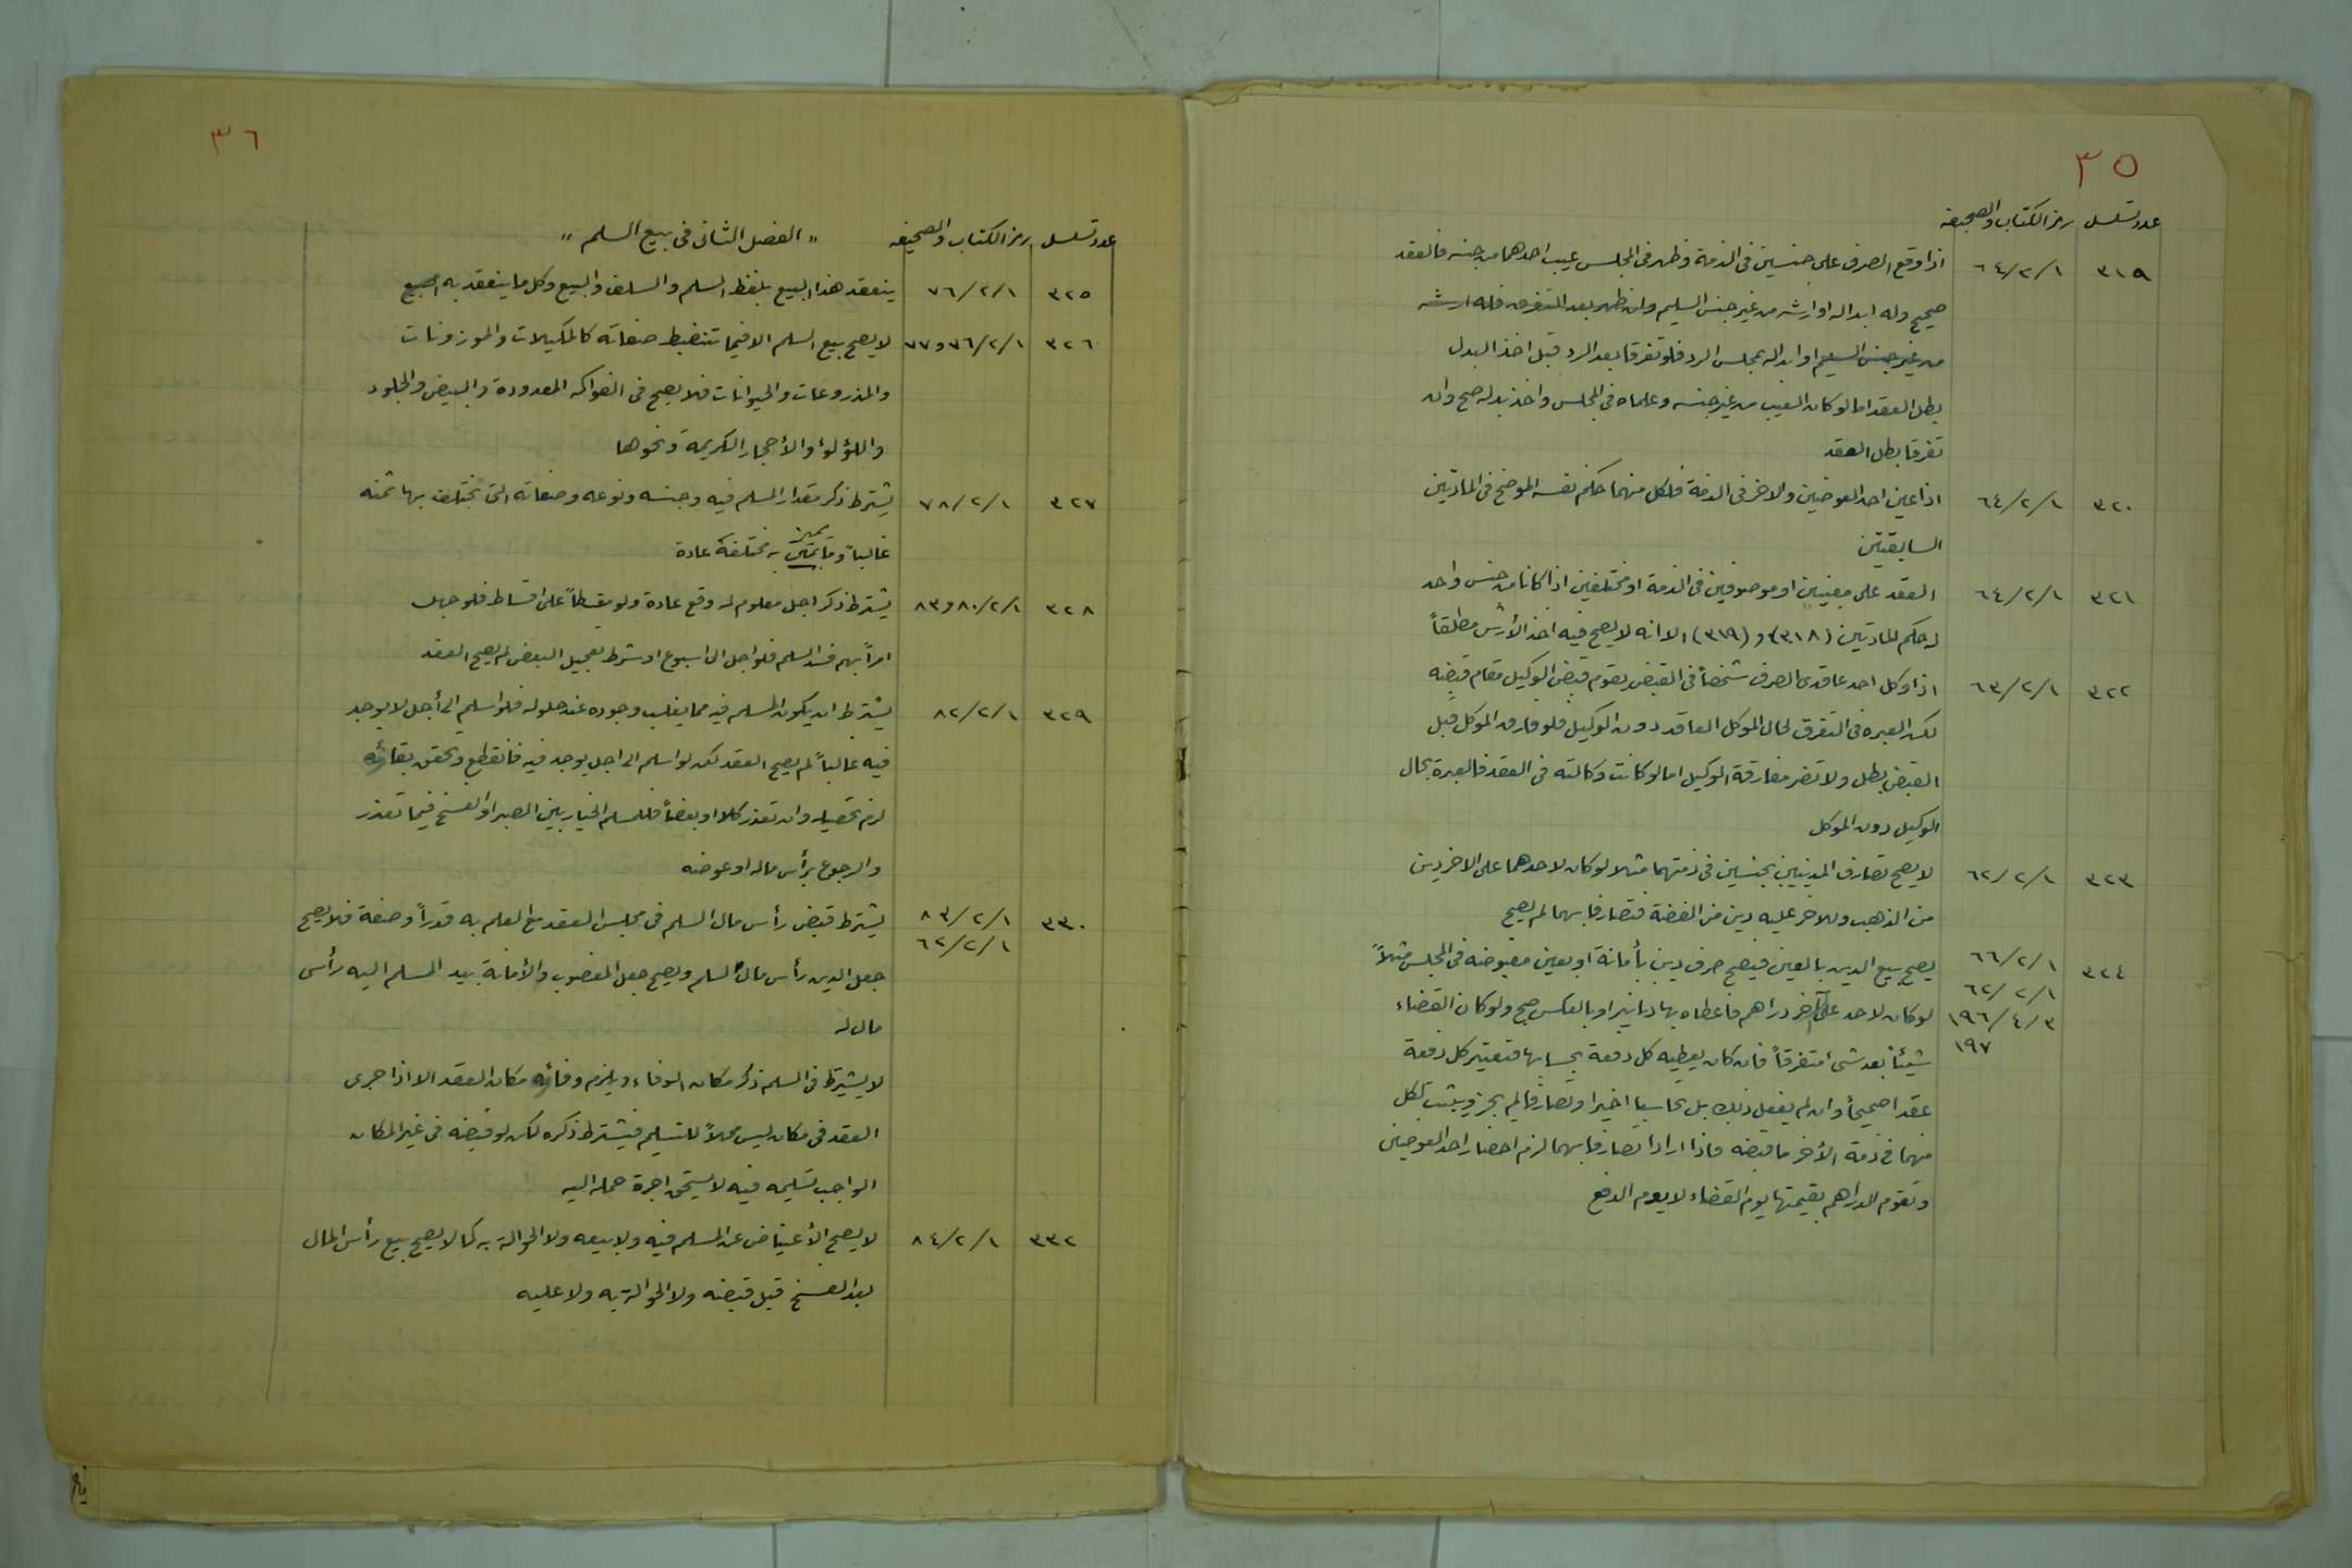 ٣٥
عدد تسلسل رمز الكتاب والصحيفه
٣١٩ ٦٤/٢/١ اذا وقع الصرف على جنسين في الذمة وظهر في المجلس عيب احدهما من جنسه فالعقد
صحيح وله ابداله او ارشه من غير جنس السليم وان ظهر بعد التفرق فله ارشه
من غير جنس السليم او ابداله بمجلس الرد فلو تفرقا بعد الرد قبل اخذ البدل
بطل العقد اما لو كان العيب من غير جنسه وعلماه في المجلس واخذ بدله صح وان
تفرقا بطل العقد
٣٢٠ ٦٤/٢/١ اذا عين احد العوضين والاخر في الذمة فلكل منهما حكم نفسه الموضح في المادتين
السابقتين
٣٢١ ٦٤/٢/١ العقد على معينين او موصوفين في الذمة او مختلفين اذا كانا من جنس واحد
له حكم المادتين (٣١٨) و (٣١٩) الا انه لا يصح فيه اخذ الأرش مطلقاً
٣٢٢ ٦٣/٢/١ اذا وكل احد عاقدى الصرف شخصاً في القبض يقوم قبض الوكيل مقام قبضه
لكن العبره في التفرق لحال الموكل العاقد دون الوكيل فلو فارق الموكل قبل
القبض بطل ولا تضر مفارقة الوكيل اما لو كانت وكالته في العقد فالعبرة بحال
الوكيل دون الموكل
٣٢٣ ٦٢/٢/١ لا يصح تصارف المدينين بجنسين في ذمتهما مثلا لو كان لاحدهما على الاخر دين
من الذهب وللاخر عليه دين من الفضة فتصارفا بهما لم يصح
٣٢٤ ٦٦/٢/١ يصح بيع الدين بالعين فيصح صرف دين بأمانة او بعين مقبوضه في المجلس مثلاً
٦٢/٢/١
١٩٦/٤/٣ لو كان لاحد على آخر دراهم فاعطاه بها دنانير او بالعكس صح ولو كان القضاء
١٩٧ شيئاً بعد شئ متفرقاً فان كان يعطيه كل دفعة بحسابها فتعتبر كل دفعة
عقدا صحيحاً وان لم يفعل ذلك بل تحاسبا اخيرا وتصارفا لم يجز ويثبت لكل
منهما في ذمة الأخر ما قبضه فاذا ارادا تصارفا بهما لزم احضار احد العوضين
وتقوم الدراهم بقيمتها يوم القضاء لا يوم الدفع
٣٦
عدد تسلسل رمز الكتاب والصحيفه " الفصل الثاني في بيع السلم "
٣٢٥ ٧٦/٢/١ ينعقد هذا البيع بلفظ السلم والسلف والبيع وكل ما ينعقد به البيع
٣٢٦ ٧٦/٢/١ و٧٧ لا يصح بيع السلم الا فيما تنضبط صفاته كالمكيلات والموزونات
والمذروعات والحيوانات فلا يصح في الفواكه المعدودة والبيض والجلود
واللؤلؤ والأحجار الكريمة ونحوها
٣٢٧ ٧٨/٢/١ يشترط ذكر مقدار المسلم فيه وجنسه ونوعه وصفاته التي تختلف بها ثمنه
غالباً وما يتميز به مختلفة عادة
٣٢٨ ٨٠/٢/١ و٨٣ يشترط ذكر اجل معلوم له وقع عادة ولو مقسطاً على اقساط فلو جهل
او أبهم فسد السلم فلو اجل الى اسبوع او شرط تعجيل البعض لم يصح العقد
٣٢٩ ٨٢/٢/١ يشترط ان يكون المسلم فيه مما يغلب وجوده عند حلوله فلو اسلم الى أجل لا يوجد
فيه غالباً لم يصح العقد لكن لو اسلم الى اجل يوجد فيه فانقطع وتحقق بقائه
لزم تحصيله وان تعذر كلا او بعضاً فللمسلم الخيار بين الصبر او الفسخ فيما تعذر
والرجوع برأس ماله او عوضه
٣٣٠ ٨٣/٢/١ يشترط قبض رأس مال السلم في مجلس العقد مع العلم به قدراً وصفة فلا يصح
٦٢/٢/١
جعل الدين رأس مال السلم ويصح جعل المغصوب والأمانة بيد المسلم اليه رأس
مال له
لا يشترط في السلم ذكر مكان الوفاء ويلزم وفائه مكان العقد الا اذا جرى
العقد في مكان ليس محلاً للتسليم فيشترط ذكره لكن لو قبضه في غير المكان
الواجب تسليمه فيه لا يستحق اجرة حمله اليه
٣٣٢ ٨٤/٢/١ لا يصح الأعتياض عن المسلم فيه ولا بيعه ولا الحوالة به كما لا يصح بيع رأس المال
بعد الفسخ قبل قبضه ولا الحوالة به ولا عليه